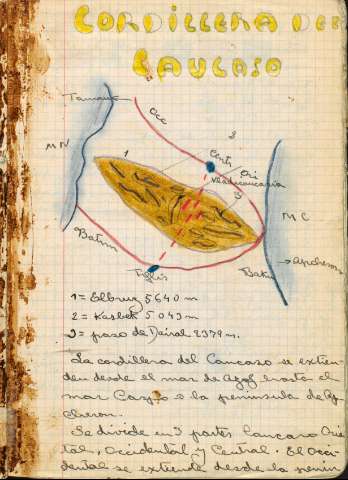 CORDILLERA DEL
CAUCASO
Taman
Occ
2
MN
1
Centr
Ori
Vladicaucaria
3
MC
Batum
Tiflis
Baku
→Apcheron
1 = Elbruz 5640 m
2 = Kasbek 5043 m
3 = paso de Dairal 2379 m.
La cordillera del Caucaso se extien-
de desde el mar de Azof hasta el
mar Caspio o la peninsula de Ap
cheron.
Se divide en 3 partes Caucaso Orien
tal, Occidental y Central. El Occi-
dental se extiende desde la penin